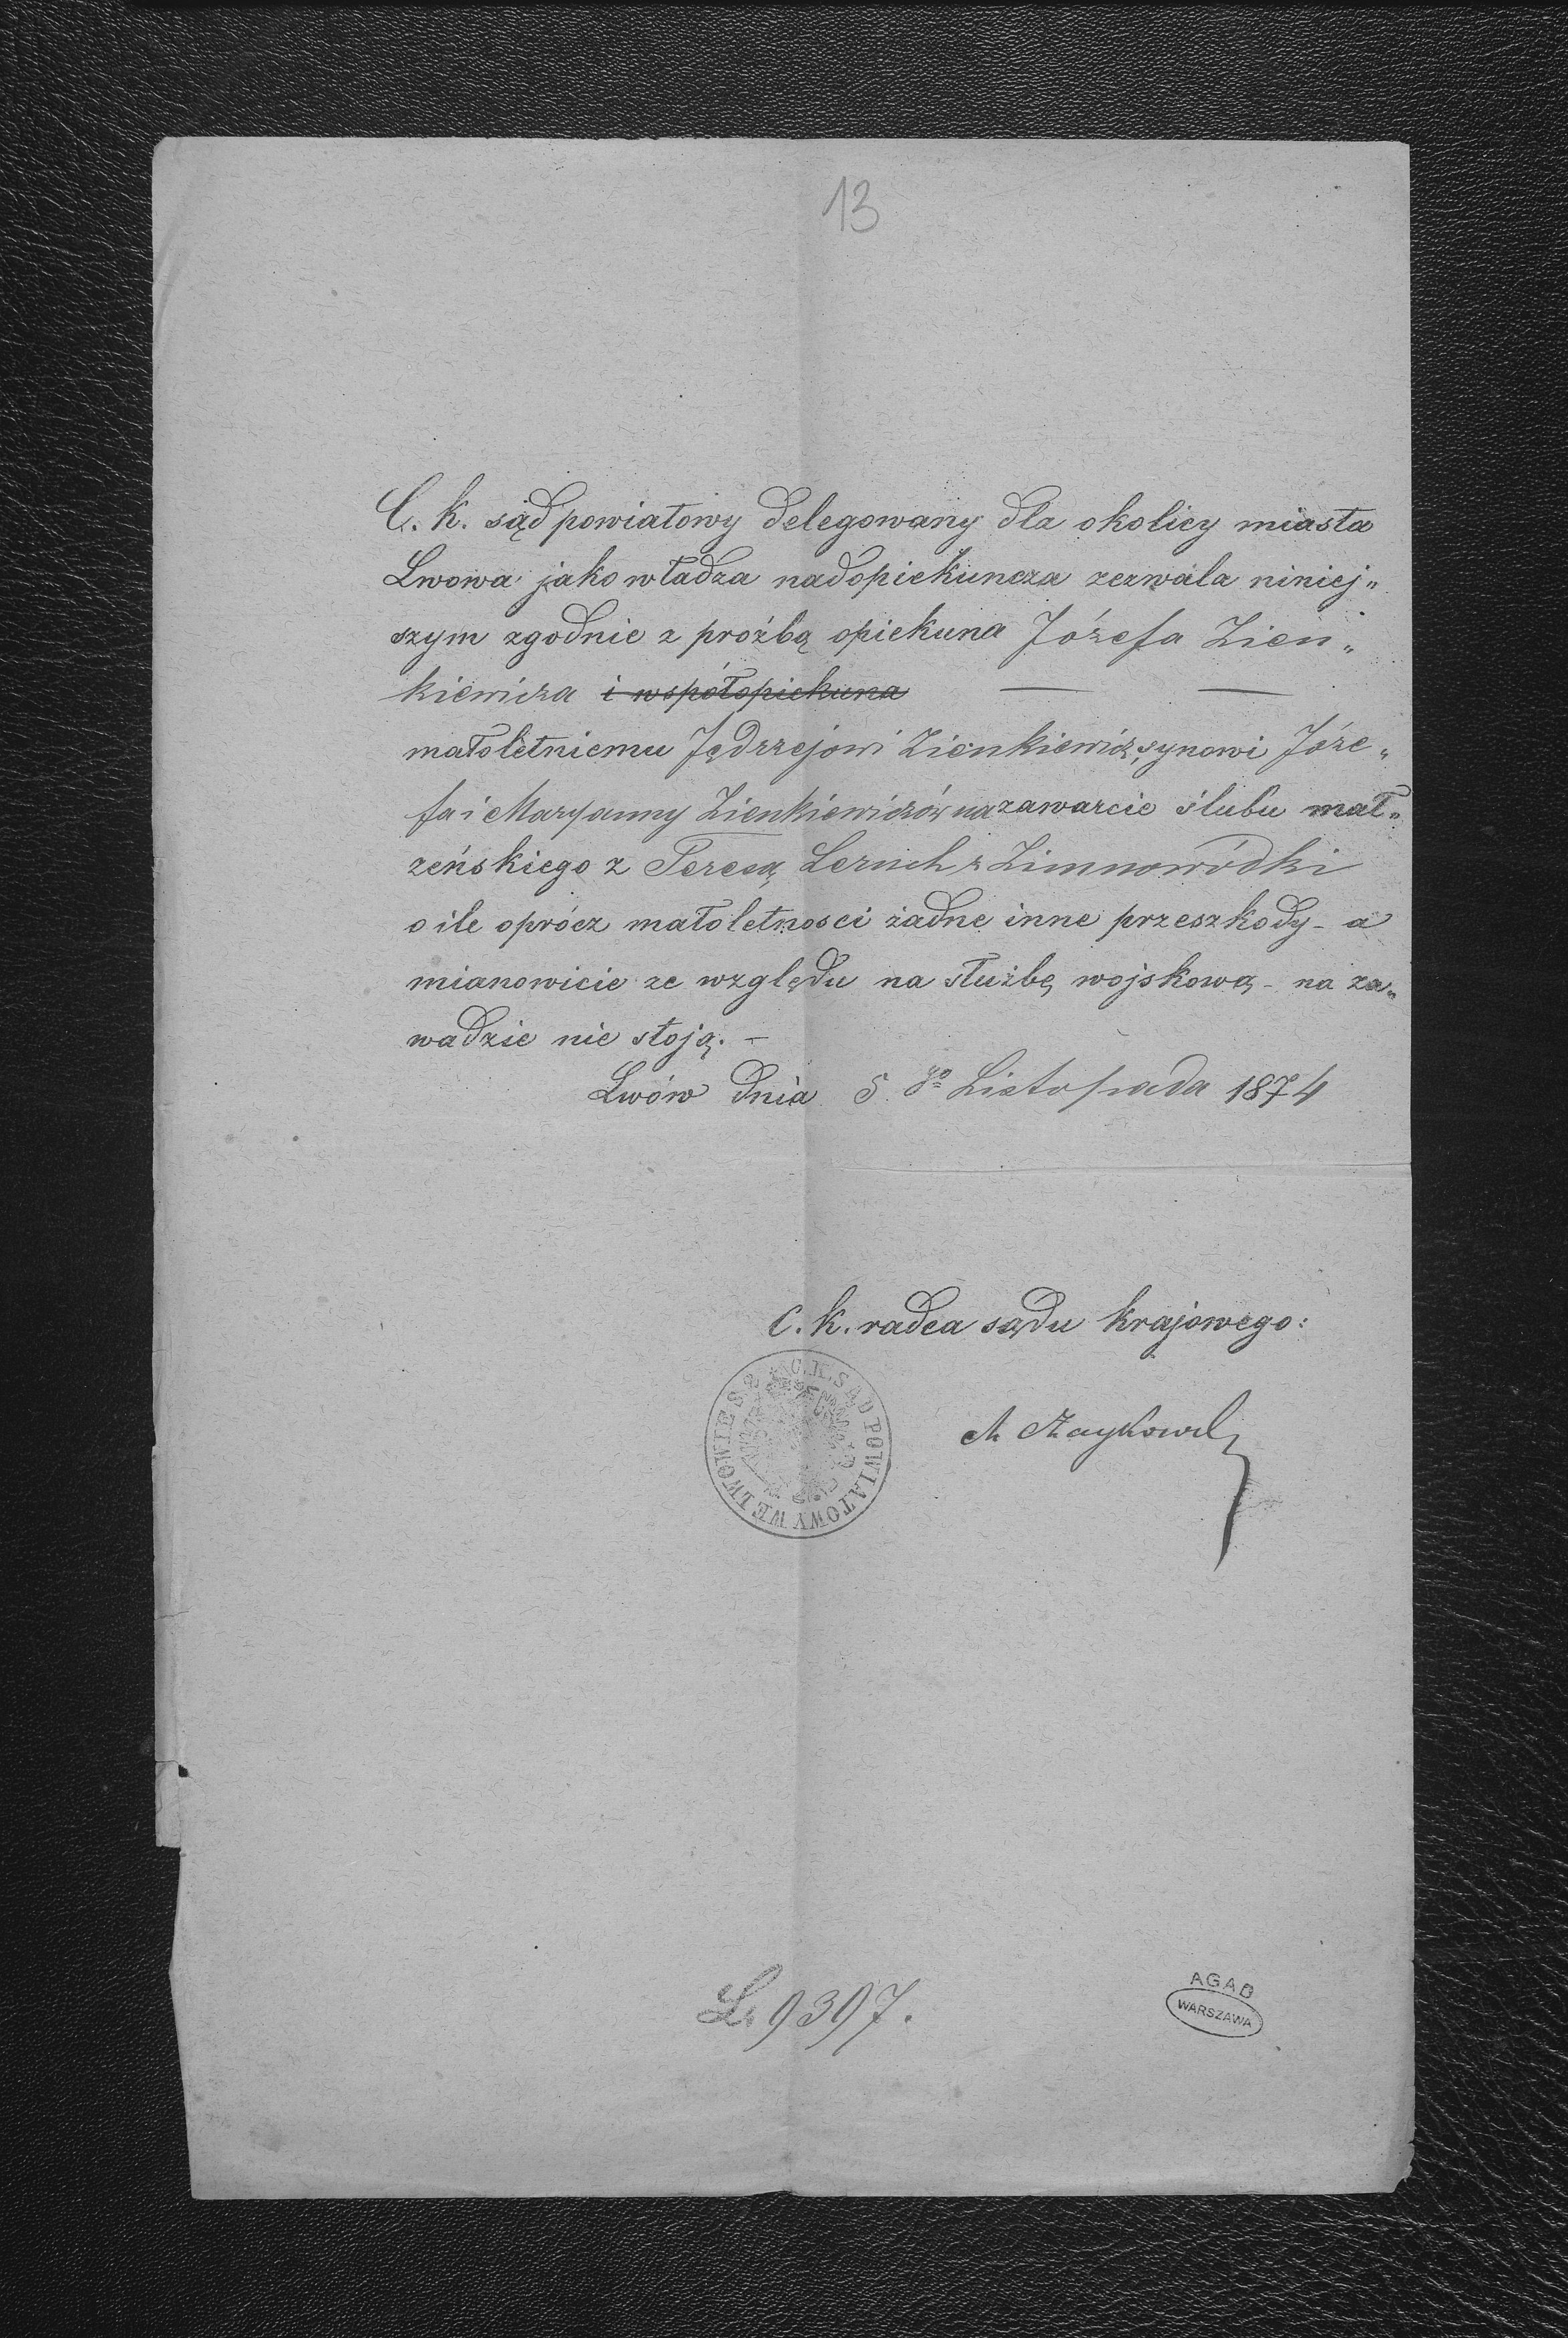 13
C. k. sąd powiatowy delegowany dla okolicy miasta
Lwowa jako władza nadopiekuncza zezwala niniej„
szym zgodnie z prożbą opiekuna Józefa Zien„
kiewicza i współopiekuna — —
małoletniemu Jędrzejowi Zienkiewicz, synowi Józe„
fa i Maryanny Zienkiewiczów na zawarcie ślubu mał„
zeńskiego z Teresą Lerach z Zimnowódki
o ile oprócz małoletnosci żadne inne przeszkody - a
mianowicie ze względu na służbę wojskową - na za„
wadzie nie stoją. -
Lwów dnia 5 go Listopada 1874
C. k. radca sądu krajowego:
C. K. SĄD POWIATOWY WE LWOWIE S 2
L. 9397.
AGAD
WARSZAWA